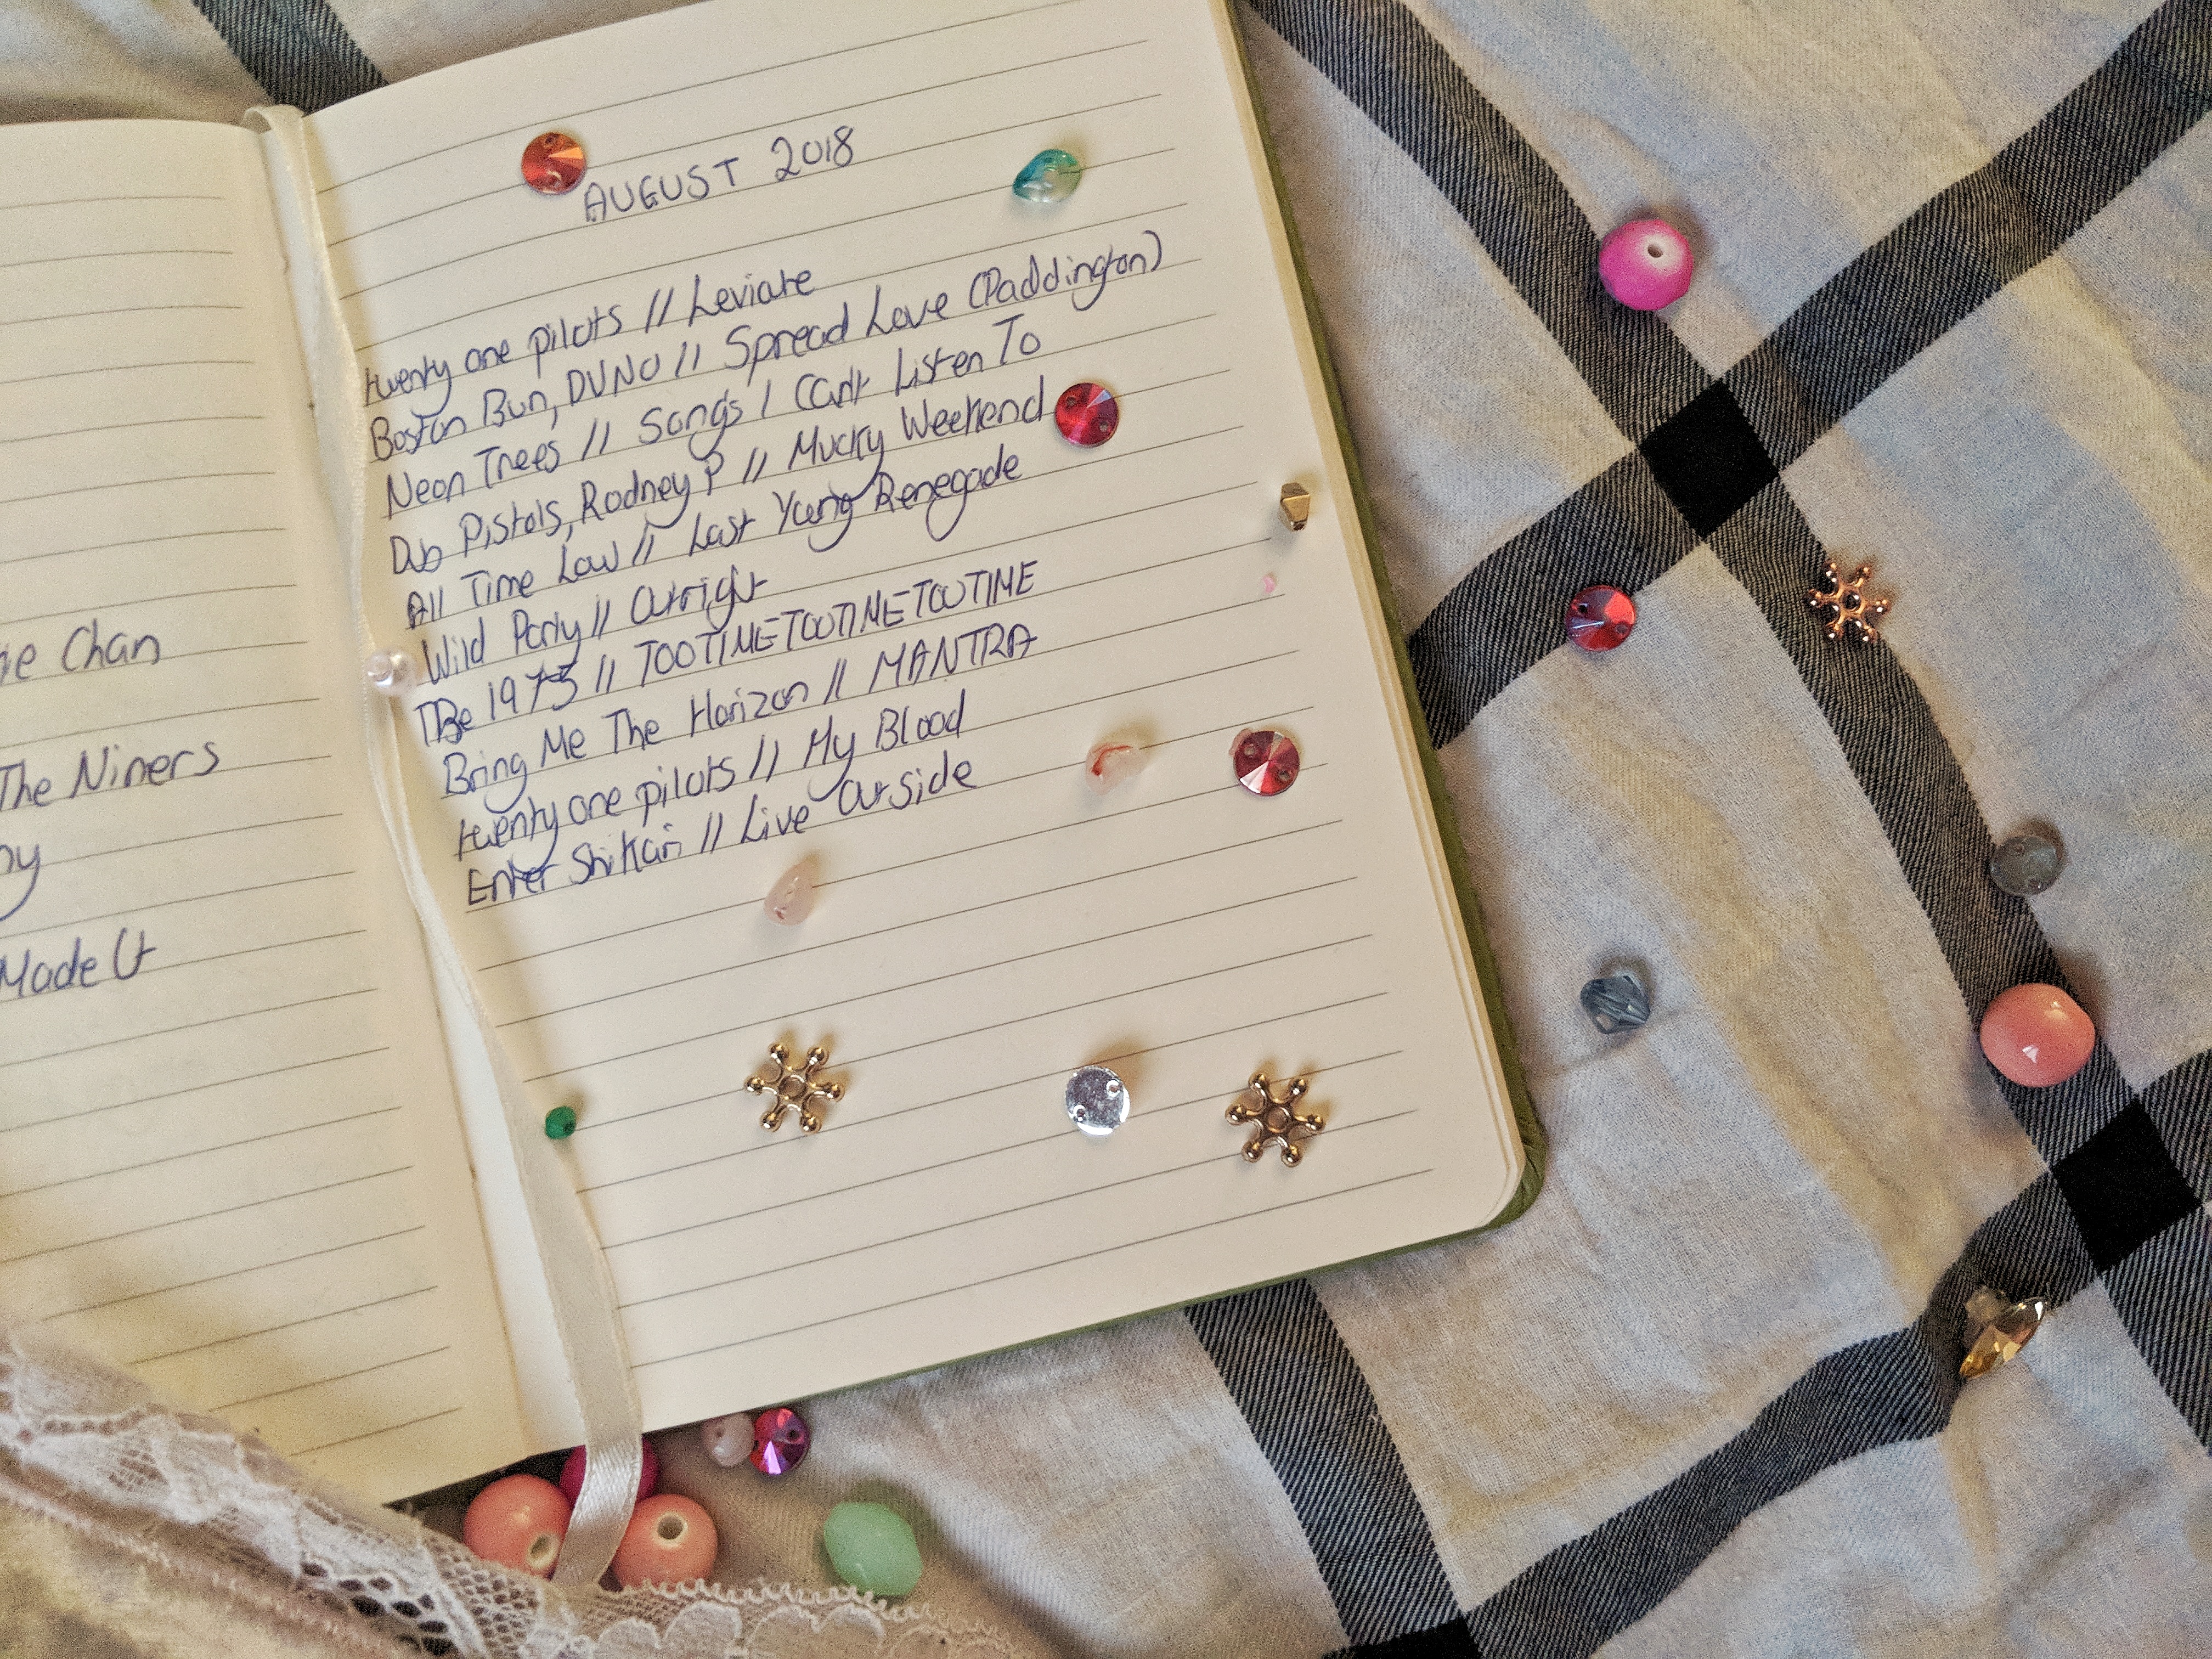 ie Chan
The Niners
ny
Made It
AUGUST 2018
twenty one pilots // Leviate
Boston Bun, DVNO // Spread Love (Paddington)
Neon Trees // Songs I Can't Listen To
Dub Pistols, Rodney P // Mucky Weekend
All Time Low // Last Young Renegade
Wild Party // Outright
The 1975 // TOOTIMETOOTIMETOOTIME
Bring Me The Horizon // MANTRA
twenty one pilots // My Blood
Enter Shikari // Live Outside